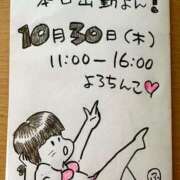 本日出勤よん!
10月30日(木)
11:00-16:00
よろちんこ